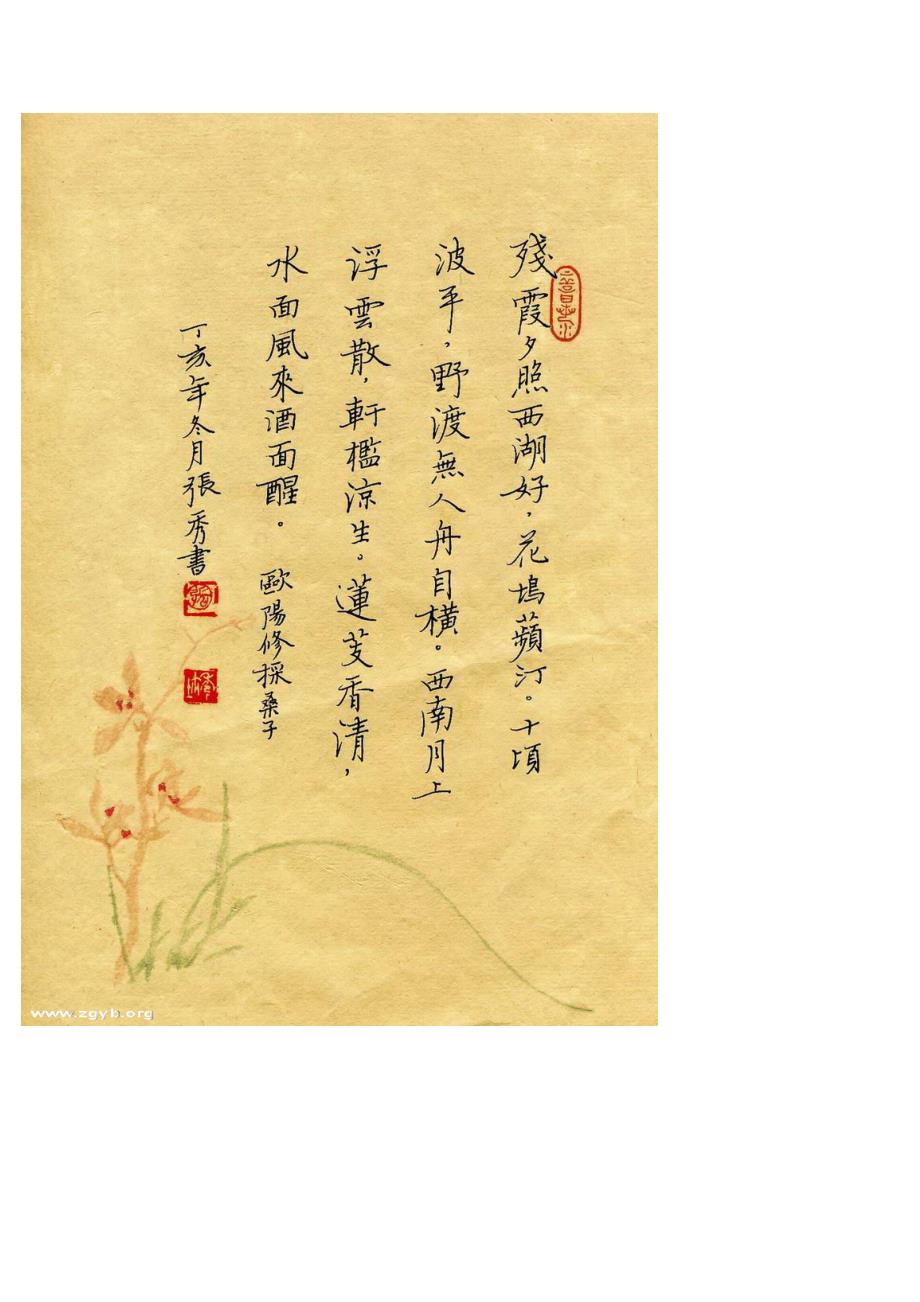 殘霞夕照西湖好，花塢蘋汀。十頃
波平，野渡無人舟自橫。西南月上
浮雲散，軒檻涼生。蓮芰香清，
水面風來酒面醒。 歐陽修採桑子
丁亥年冬月張秀書
www.zgyb.org